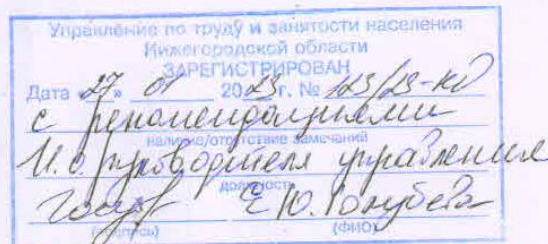 Управление по труду и занятости населения
Нижегородской области
ЗАРЕГИСТРИРОВАН
Дата «27» 01 2023г. № 123/23-КД
с рекомендациями
наличие/отсутствие замечаний
И.о. руководителя управления
должность
Е.Ю. Голубева
(подпись) (ФИО)